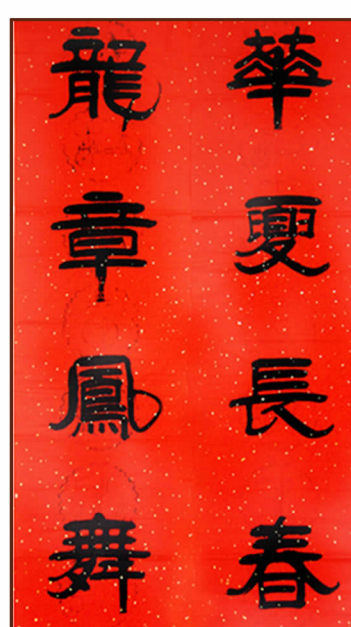 華夏長春
龍章鳳舞